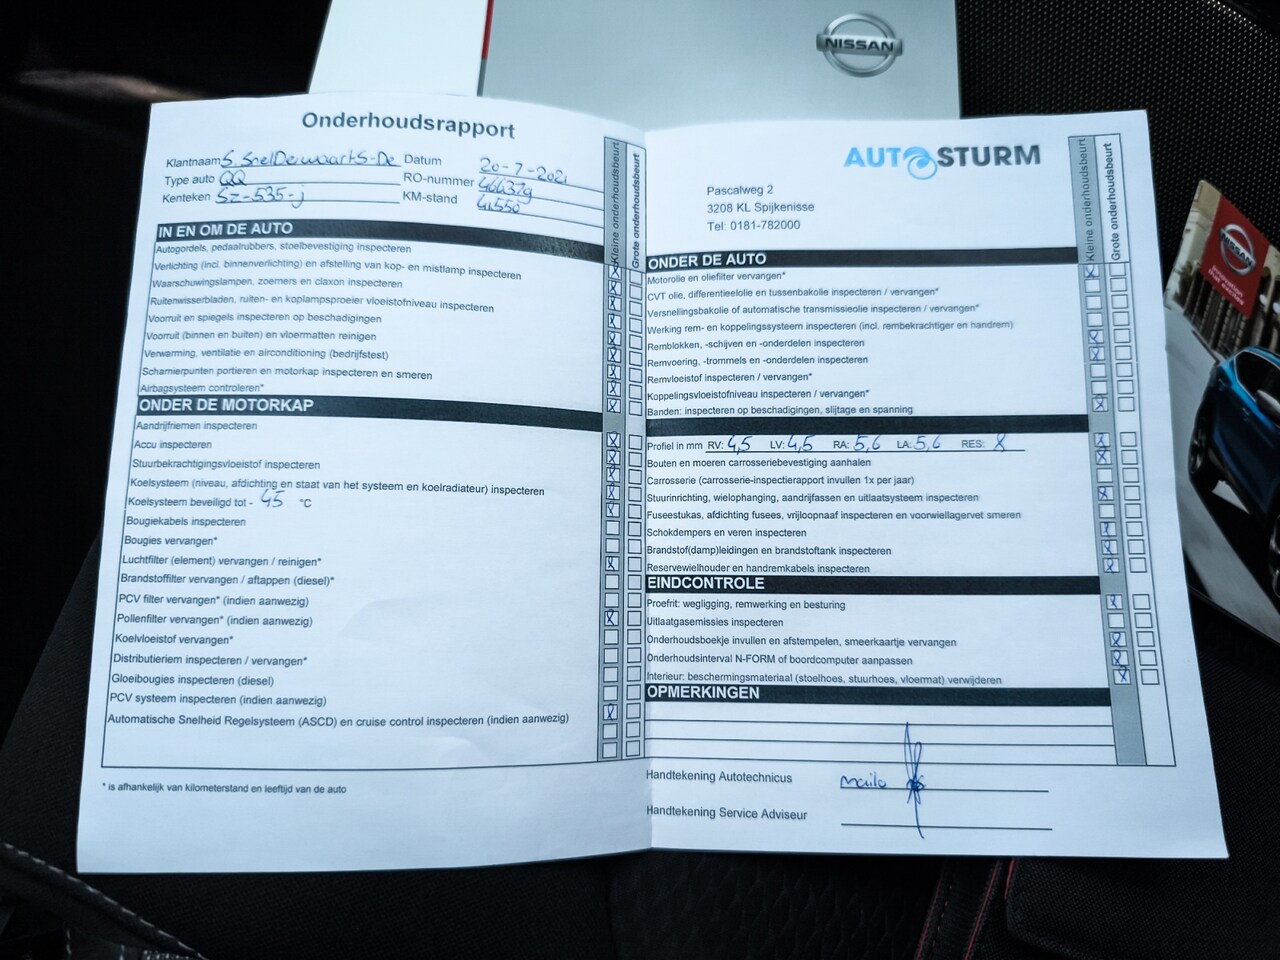 NISSAN
Onderhoudsrapport
Klantnaam S. SnelDewaart-S-De
Datum 20-7-2021
Type auto QQ
RO-nummer
Kenteken SZ-535-j
KM-stand 41550
Kleine onderhoudsbeurt
Grote onderhoudsbeurt
IN EN OM DE AUTO
Autogordels, pedaalrubbers, stoelbevestiging inspecteren
Verlichting (incl. binnenverlichting) en afstelling van kop- en mistlamp inspecteren
Waarschuwingslampen, zoemers en claxon inspecteren
Ruitenwisserbladen, ruiten- en koplampsproeier vloeistofniveau inspecteren
Voorruit en spiegels inspecteren op beschadigingen
Voorruit (binnen en buiten) en vloermatten reinigen
Verwarming, ventilatie en airconditioning (bedrijfstest)
Scharnierpunten portieren en motorkap inspecteren en smeren
Airbagsysteem controleren*
ONDER DE MOTORKAP
Aandrijfriemen inspecteren
Accu inspecteren
Stuurbekrachtigingsvloeistof inspecteren
Koelsysteem (niveau, afdichting en staat van het systeem en koelradiateur) inspecteren
Koelsysteem beveiligd tot - 45 °C
Bougiekabels inspecteren
Bougies vervangen*
Luchtfilter (element) vervangen / reinigen*
Brandstoffilter vervangen / aftappen (diesel)*
PCV filter vervangen* (indien aanwezig)
Pollenfilter vervangen* (indien aanwezig)
Koelvloeistof vervangen*
Distributieriem inspecteren / vervangen*
Gloeibougies inspecteren (diesel)
PCV systeem inspecteren (indien aanwezig)
Automatische Snelheid Regelsysteem (ASCD) en cruise control inspecteren (indien aanwezig)
* is afhankelijk van kilometerstand en leeftijd van de auto
AUTO STURM
Pascalweg 2
3208 KL Spijkenisse
Tel: 0181-782000
Kleine onderhoudsbeurt
Grote onderhoudsbeurt
ONDER DE AUTO
Motorolie en oliefilter vervangen*
CVT olie, differentieelolie en tussenbakolie inspecteren / vervangen*
Versnellingsbakolie of automatische transmissieolie inspecteren / vervangen*
Werking rem- en koppelingssysteem inspecteren (incl. rembekrachtiger en handrem)
Remblokken, -schijven en -onderdelen inspecteren
Remvoering, -trommels en -onderdelen inspecteren
Remvloeistof inspecteren / vervangen*
Koppelingsvloeistofniveau inspecteren / vervangen*
Banden: inspecteren op beschadigingen, slijtage en spanning
Profiel in mm RV: 4,5 LV: 4,5 RA: 5,6 LA: 5,6 RES: X
Bouten en moeren carrosseriebevestiging aanhalen
Carrosserie (carrosserie-inspectierapport invullen 1x per jaar)
Stuurinrichting, wielophanging, aandrijfassen en uitlaatsysteem inspecteren
Fuseestukas, afdichting fusees, vrijloopnaaf inspecteren en voorwiellagervet smeren
Schokdempers en veren inspecteren
Brandstof(damp)leidingen en brandstoftank inspecteren
Reservewielhouder en handremkabels inspecteren
EINDCONTROLE
Proefrit: wegligging, remwerking en besturing
Uitlaatgasemissies inspecteren
Onderhoudsboekje invullen en afstempelen, smeerkaartje vervangen
Onderhoudsinterval N-FORM of boordcomputer aanpassen
Interieur: beschermingsmateriaal (stoelhoes, stuurhoes, vloermat) verwijderen
OPMERKINGEN
Handtekening Autotechnicus
Handtekening Service Adviseur
NISSAN